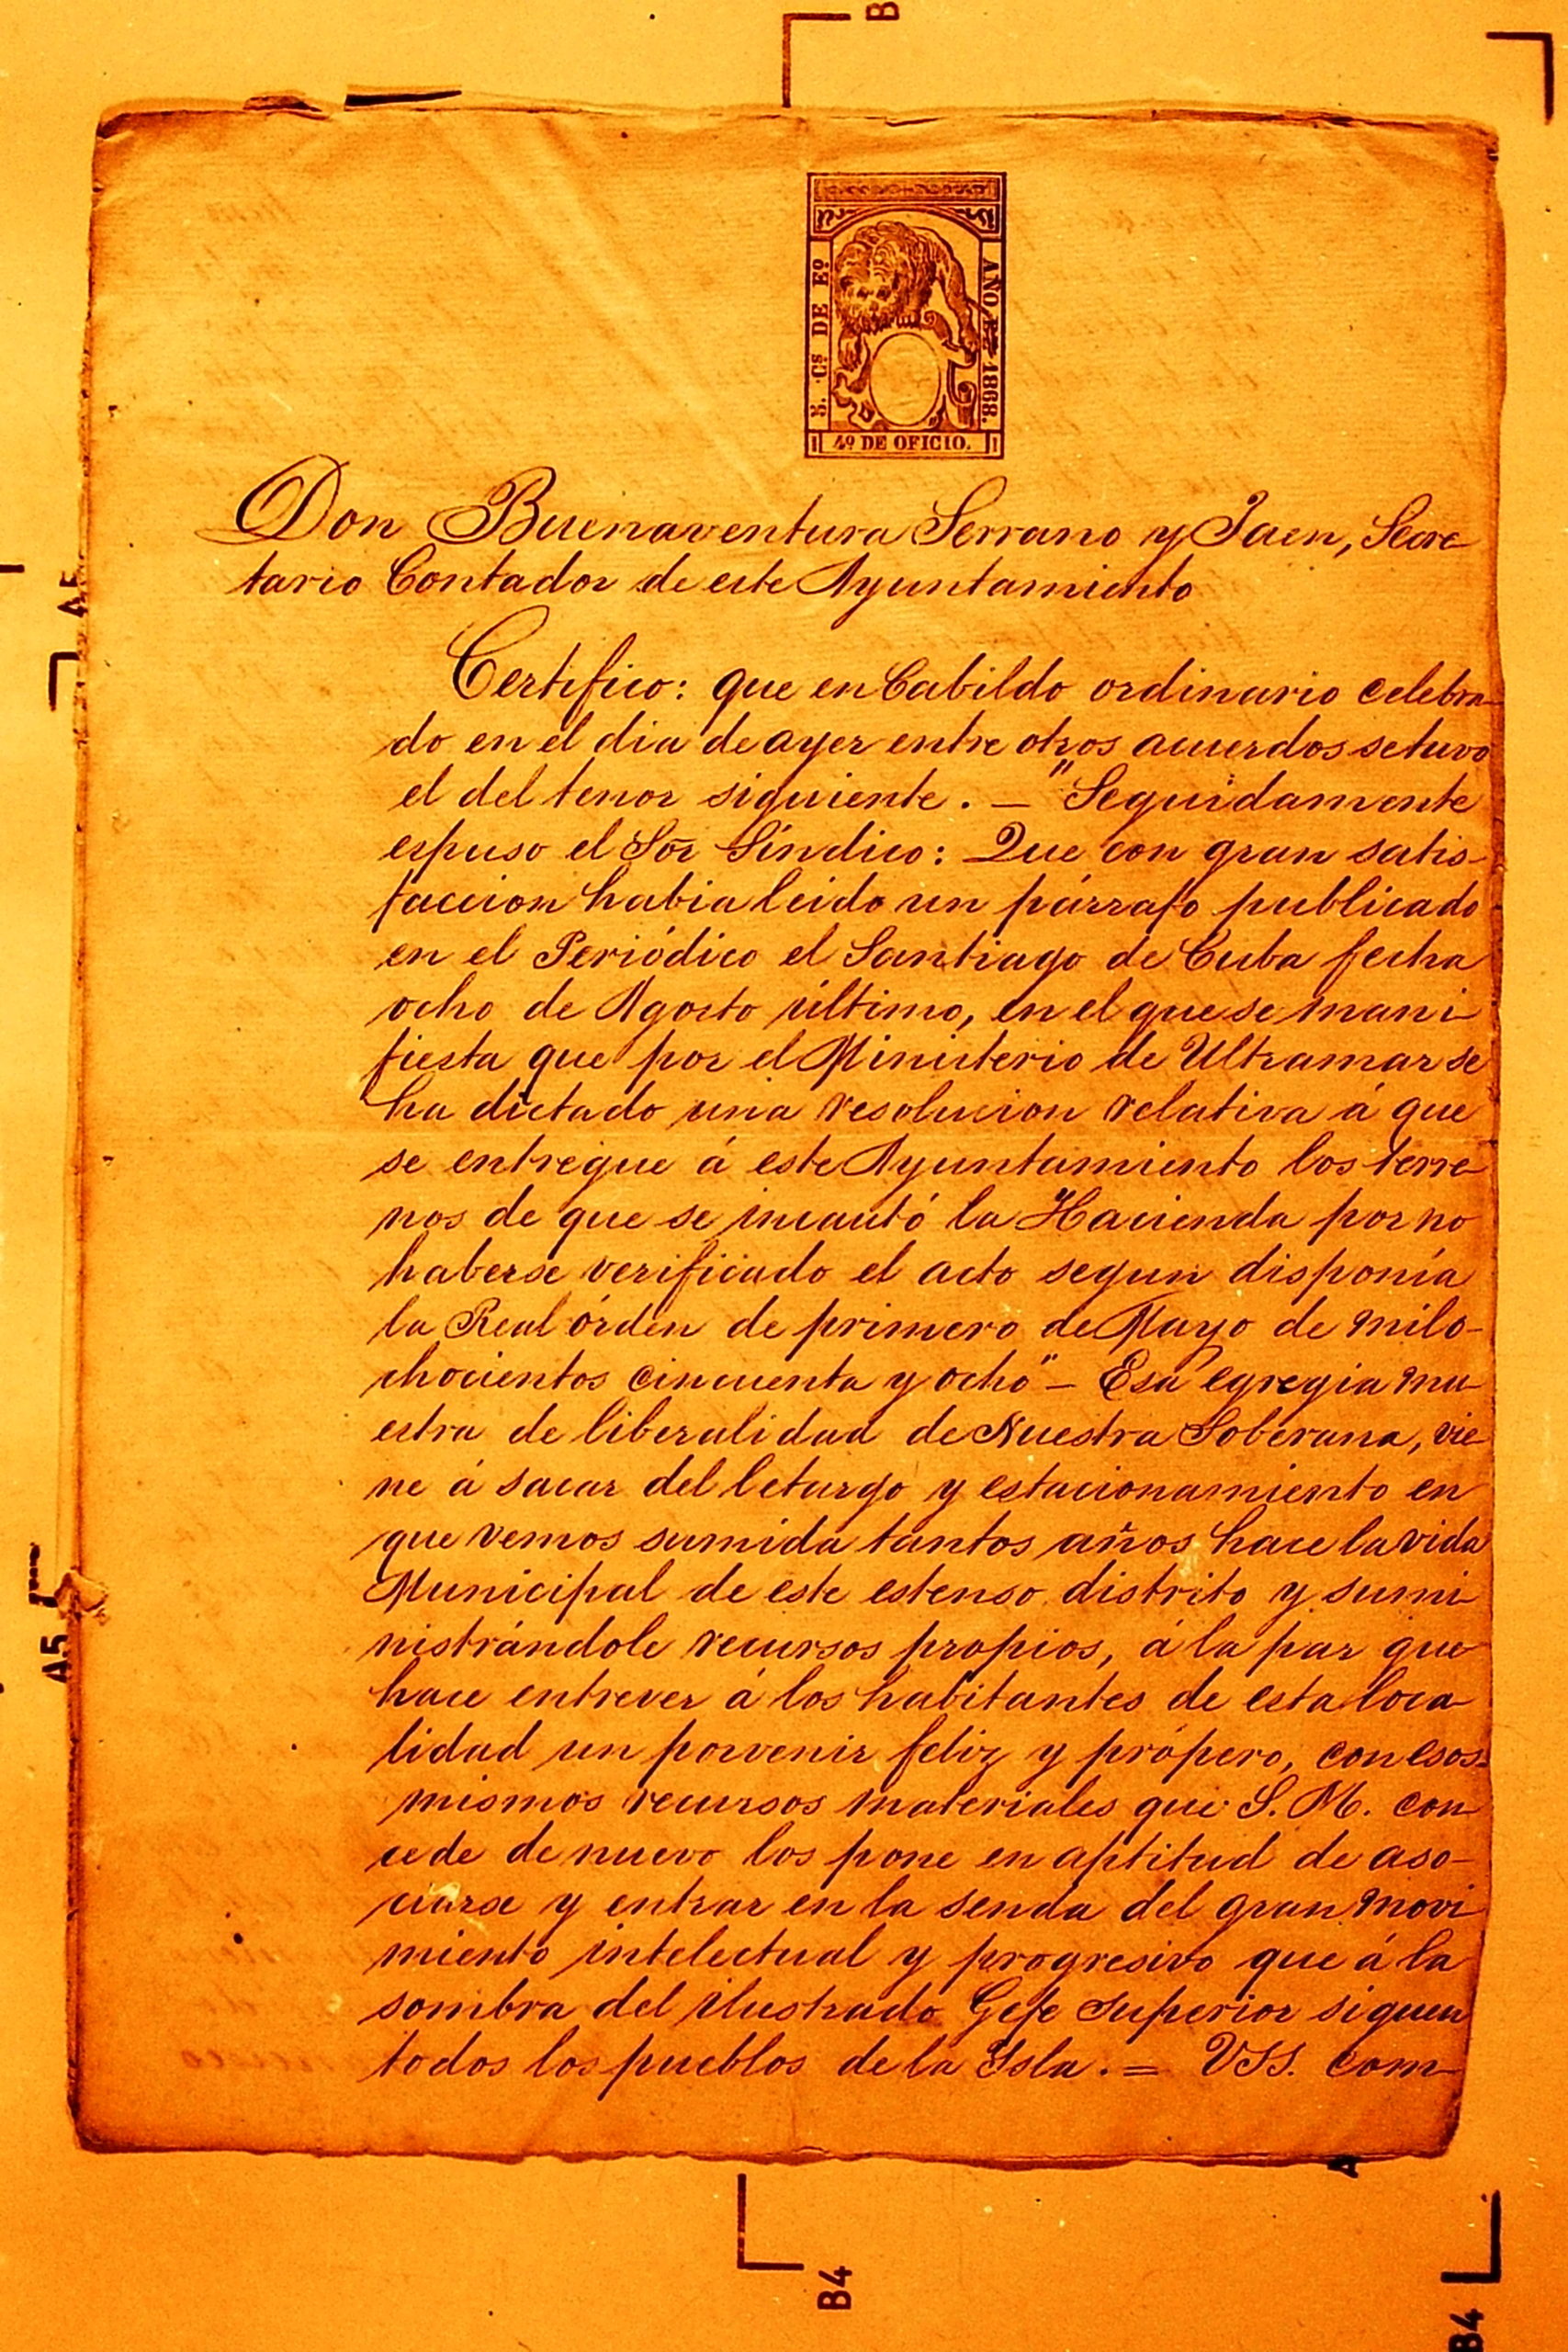 B
5. Cs DE Eo
AÑO DE 1868.
4º DE OFICIO.
Don Buenaventura Serrano y Jaen, Secre-
tario Contador de este Ayuntamiento
Certifico: que en Cabildo ordinario celebra-
do en el dia de ayer entre otros acuerdos se tuvo
el del tenor siguiente. — "Seguidamente
espuso el Sor Síndico: Que con gran satis-
faccion habia leido un párrafo publicado
en el Periódico el Santiago de Cuba fecha
ocho de Agosto último, en el que se mani-
fiesta que por el Ministerio de Ultramar se
ha dictado una resolucion relativa á que
se entregue á este Ayuntamiento los terre-
nos de que se incautó la Hacienda por no
haberse verificado el acto segun disponía
la Real órden de primero de Mayo de milo-
chocientos cincuenta y ocho" — Esa egregia mu-
estra de liberalidad de Nuestra Soberana, vie-
ne á sacar del letargo y estacionamiento en
que vemos sumida tantos años hace la vida
Municipal de este estenso distrito y sumi-
nistrándole recursos propios, á la par que
hace entrever á los habitantes de esta loca-
lidad un porvenir feliz y própero, con esos
mismos recursos materiales que S. M. con-
cede de nuevo los pone en aptitud de aso-
ciarse y entrar en la senda del gran movi-
miento intelectual y progresivo que á la
sombra del ilustrado Gefe Superior siguen
todos los pueblos de la Ysla. = VSS. com-
A5
A5
A
B4
B4